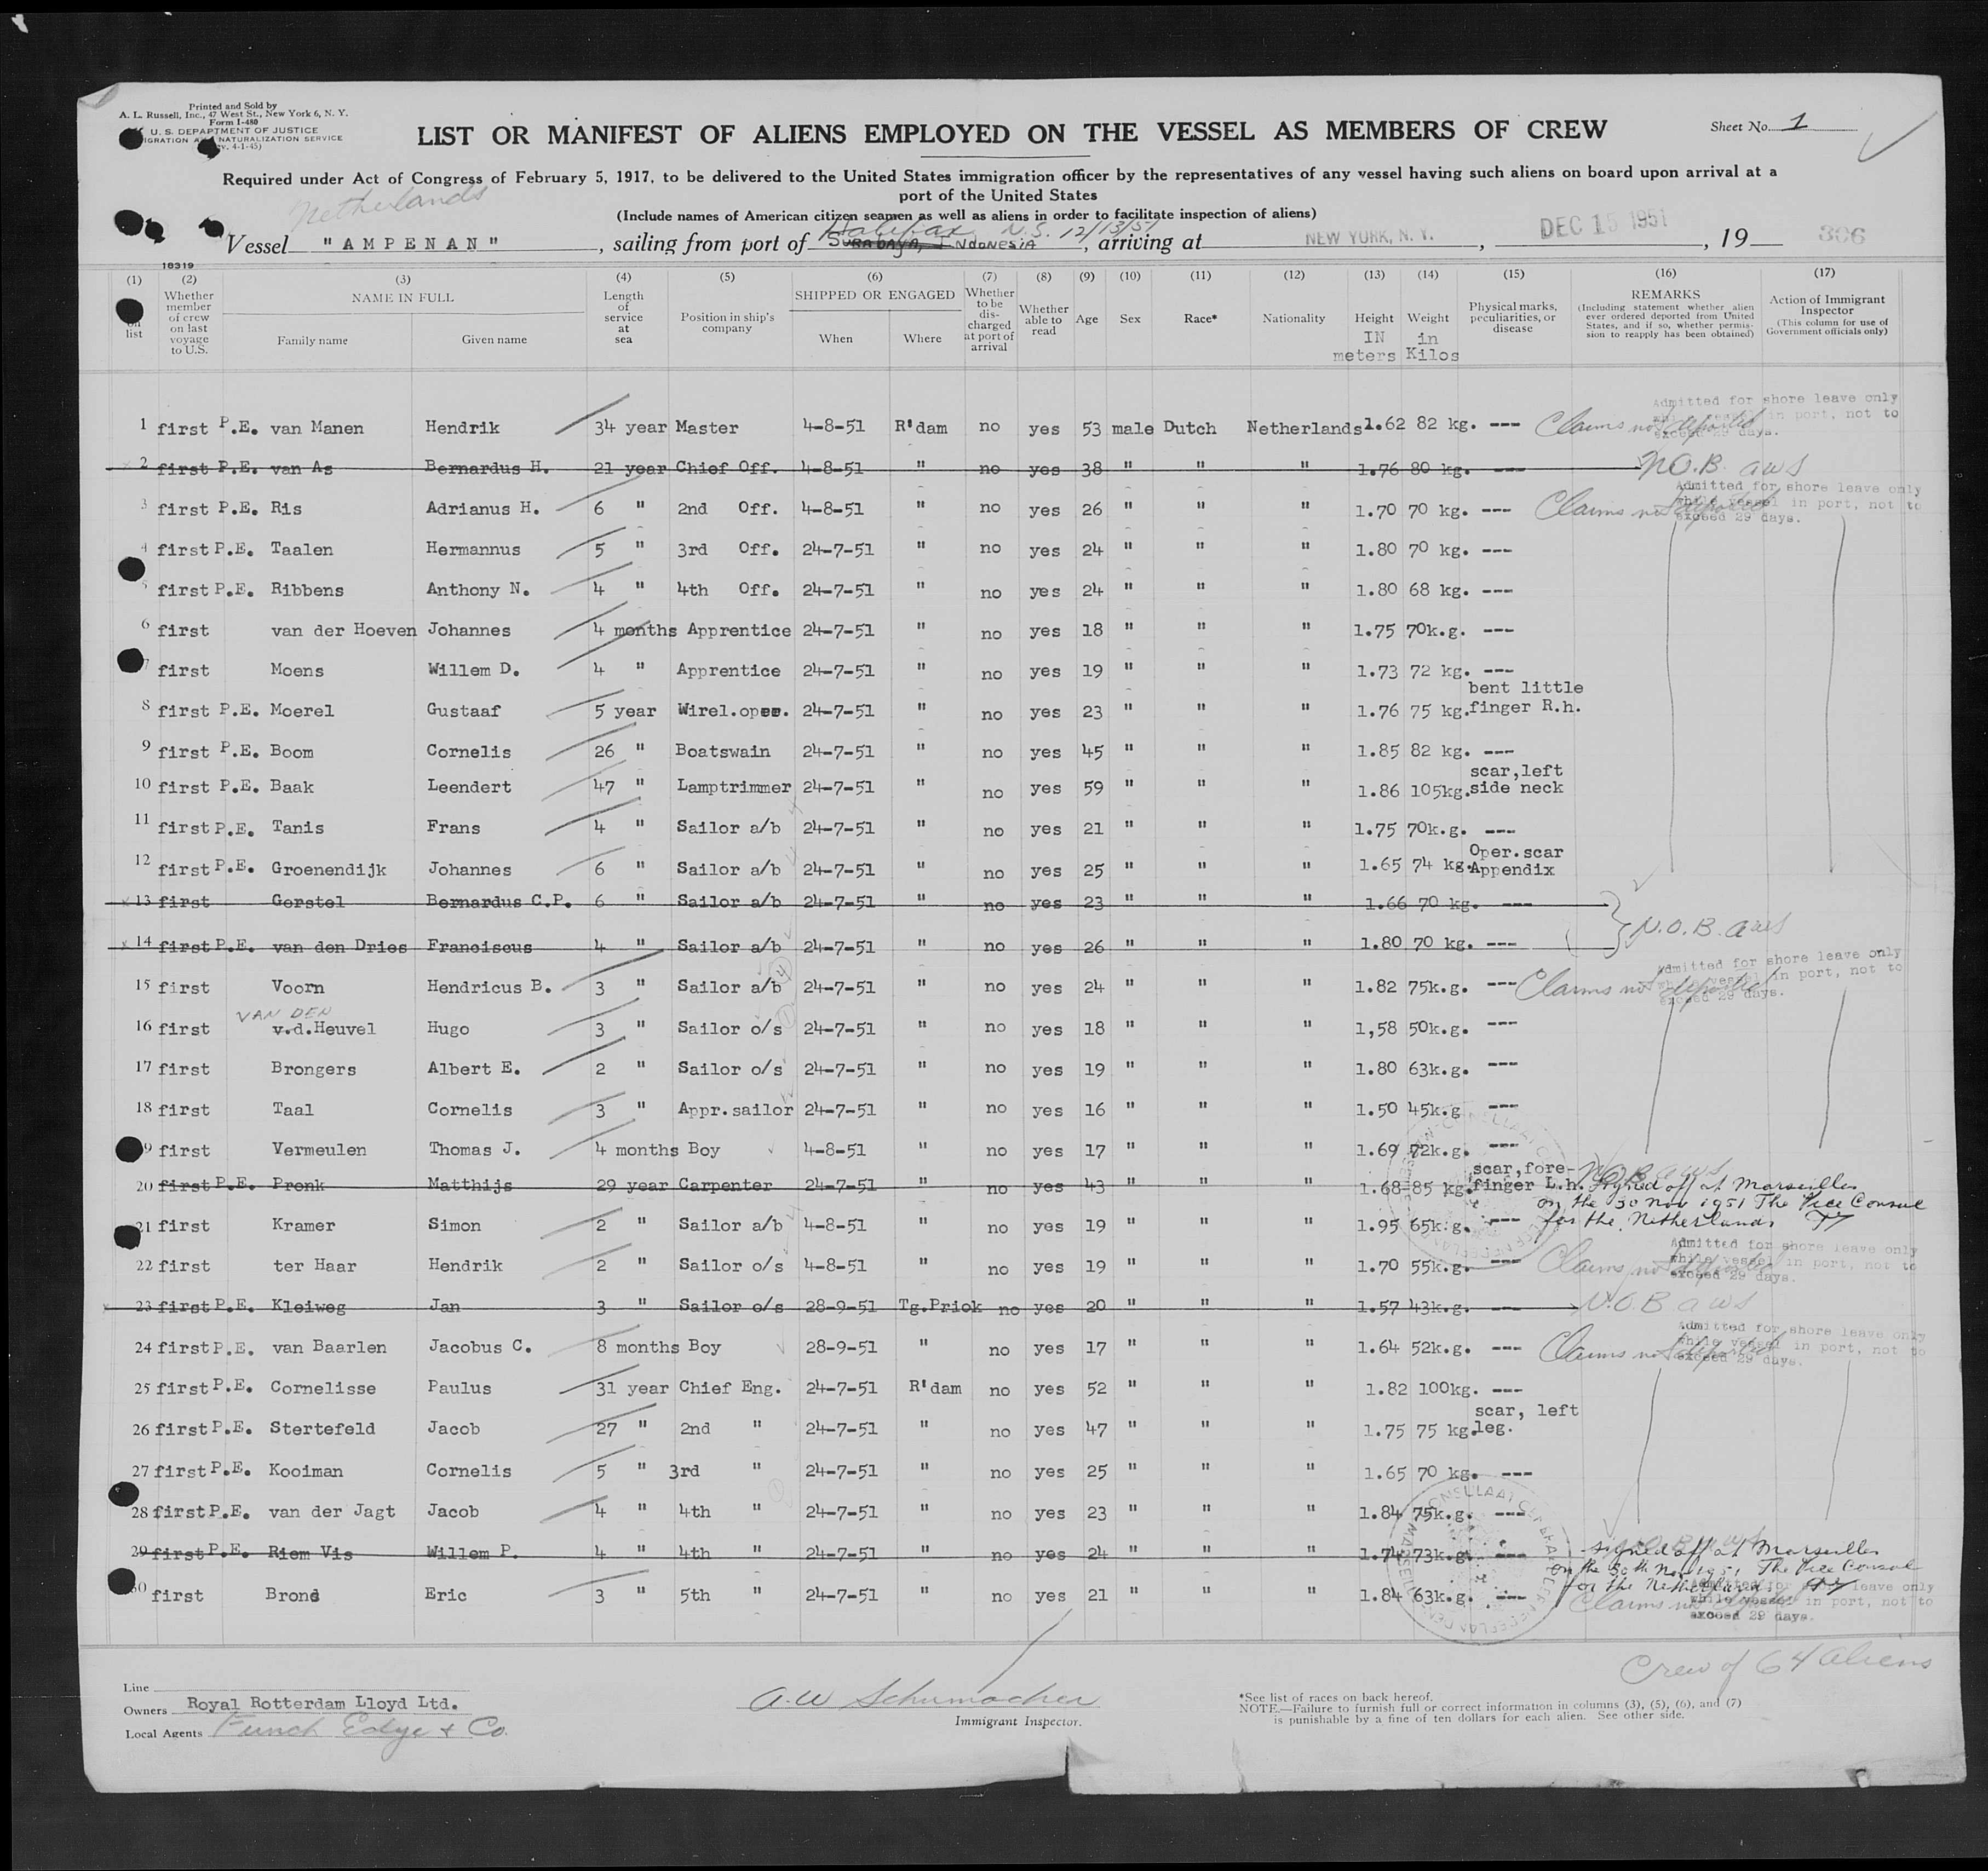 Printed and Sold by
A. L. Russell, Inc., 47 West St., New York 6, N. Y.
Form I-480
U. S. DEPARTMENT OF JUSTICE
NATURALIZATION SERVICE
4-1-45)
LIST OR MANIFEST OF ALIENS EMPLOYED ON THE VESSEL AS MEMBERS OF CREW
Sheet No. 1
Required under Act of Congress of February 5, 1917, to be delivered to the United States immigration officer by the representatives of any vessel having such aliens on board upon arrival at a
port of the United States
Netherlands
(Include names of American citizen seamen as well as aliens in order to facilitate inspection of aliens)
Halifax N.S. 12/13/51
Vessel "AMPENAN", sailing from port of SURABAYA, INDONESIA, arriving at NEW YORK, N. Y., DEC 15 1951, 19 306
18319
(1) (2) (3) (4) (5) (6) (7) (8) (9) (10) (11) (12) (13) (14) (15) (16) (17)
on list
Whether member of crew on last voyage to U.S.
NAME IN FULL
Family name Given name
Length of service at sea
Position in ship's company
SHIPPED OR ENGAGED
When Where
Whether to be discharged at port of arrival
Whether able to read
Age
Sex
Race*
Nationality
Height IN meters
Weight in Kilos
Physical marks, peculiarities, or disease
REMARKS
(Including statement whether alien ever ordered deported from United States, and if so, whether permission to reapply has been obtained)
Action of Immigrant Inspector
(This column for use of Government officials only)
Admitted for shore leave only
while vessel in port, not to
exceed 29 days.
1 first P.E. van Manen Hendrik 34 year Master 4-8-51 R'dam no yes 53 male Dutch Netherlands 1.62 82 kg. --- Claims not deported
2 first P.E. van As Bernardus H. 21 year Chief Off. 4-8-51 " no yes 38 " " " 1.76 80 kg. --- N.O.B. aws
Admitted for shore leave only
while vessel in port, not to
exceed 29 days.
3 first P.E. Ris Adrianus H. 6 " 2nd Off. 4-8-51 " no yes 26 " " " 1.70 70 kg. --- Claims not deported
4 first P.E. Taalen Hermannus 5 " 3rd Off. 24-7-51 " no yes 24 " " " 1.80 70 kg. ---
5 first P.E. Ribbens Anthony N. 4 " 4th Off. 24-7-51 " no yes 24 " " " 1.80 68 kg. ---
6 first van der Hoeven Johannes 4 months Apprentice 24-7-51 " no yes 18 " " " 1.75 70k.g. ---
7 first Moens Willem D. 4 " Apprentice 24-7-51 " no yes 19 " " " 1.73 72 kg. ---
8 first P.E. Moerel Gustaaf 5 year Wirel.oper. 24-7-51 " no yes 23 " " " 1.76 75 kg. bent little finger R.h.
9 first P.E. Boom Cornelis 26 " Boatswain 24-7-51 " no yes 45 " " " 1.85 82 kg. ---
10 first P.E. Baak Leendert 47 " Lamptrimmer 24-7-51 " no yes 59 " " " 1.86 105kg. scar, left side neck
11 first P.E. Tanis Frans 4 " Sailor a/b 24-7-51 " no yes 21 " " " 1.75 70k.g. ---
12 first P.E. Groenendijk Johannes 6 " Sailor a/b 24-7-51 " no yes 25 " " " 1.65 74 kg. Oper.scar Appendix
13 first Gorstel Bernardus C.P. 6 " Sailor a/b 24-7-51 " no yes 23 " " " 1.66 70 kg. ---
N.O.B. aws
14 first P.E. van den Dries Franciscus 4 " Sailor a/b 24-7-51 " no yes 26 " " " 1.80 70 kg. ---
Admitted for shore leave only
while vessel in port, not to
exceed 29 days.
15 first Voorn Hendricus B. 3 " Sailor a/b 24-7-51 " no yes 24 " " " 1.82 75k.g. --- Claims not deported
VAN DEN
16 first v.d.Heuvel Hugo 3 " Sailor o/s 24-7-51 " no yes 18 " " " 1,58 50k.g. ---
17 first Brongers Albert E. 2 " Sailor o/s 24-7-51 " no yes 19 " " " 1.80 63k.g. ---
18 first Taal Cornelis 3 " Appr.sailor 24-7-51 " no yes 16 " " " 1.50 45k.g ---
19 first Vermeulen Thomas J. 4 months Boy 4-8-51 " no yes 17 " " " 1.69 72k.g. ---
20 first P.E. Pronk Matthijs 29 year Carpenter 24-7-51 " no yes 43 " " " 1.68 85 kg. scar,fore-finger L.h. N.O.B aws signed off at Marseilles
on the 30 Nov 1951 The Vice Consul
for the Netherlands
21 first Kramer Simon 2 " Sailor a/b 4-8-51 " no yes 19 " " " 1.95 65k.g. ---
Admitted for shore leave only
while vessel in port, not to
exceed 29 days.
22 first ter Haar Hendrik 2 " Sailor o/s 4-8-51 " no yes 19 " " " 1.70 55k.g. --- Claims not deported
23 first P.E. Kleiweg Jan 3 " Sailor o/s 28-9-51 Tg.Priok no yes 20 " " " 1.57 43k.g. --- N.O.B aws
Admitted for shore leave only
while vessel in port, not to
exceed 29 days.
24 first P.E. van Baarlen Jacobus C. 8 months Boy 28-9-51 " no yes 17 " " " 1.64 52k.g. --- Claims not deported
25 first P.E. Cornelisse Paulus 31 year Chief Eng. 24-7-51 R'dam no yes 52 " " " 1.82 100kg. ---
26 first P.E. Stertefeld Jacob 27 " 2nd " 24-7-51 " no yes 47 " " " 1.75 75 kg. scar, left leg.
27 first P.E. Kooiman Cornelis 5 " 3rd " 24-7-51 " no yes 25 " " " 1.65 70 kg. ---
28 first P.E. van der Jagt Jacob 4 " 4th " 24-7-51 " no yes 23 " " " 1.84 75k.g. ---
29 first P.E. Riem Vis Willem P. 4 " 4th " 24-7-51 " no yes 24 " " " 1.74 73k.g. --- signed off at Marseilles
on the 30th Nov 1951 The Vice Consul
for the Netherlands
Admitted for shore leave only
while vessel in port, not to
exceed 29 days.
30 first Brond Eric 3 " 5th " 24-7-51 " no yes 21 " " " 1.84 63k.g. --- Claims not deported
Crew of 64 aliens
Line
Owners Royal Rotterdam Lloyd Ltd.
Local Agents Funch Edye & Co.
A.W Schumacher
Immigrant Inspector.
*See list of races on back hereof.
NOTE.—Failure to furnish full or correct information in columns (3), (5), (6), and (7)
is punishable by a fine of ten dollars for each alien. See other side.